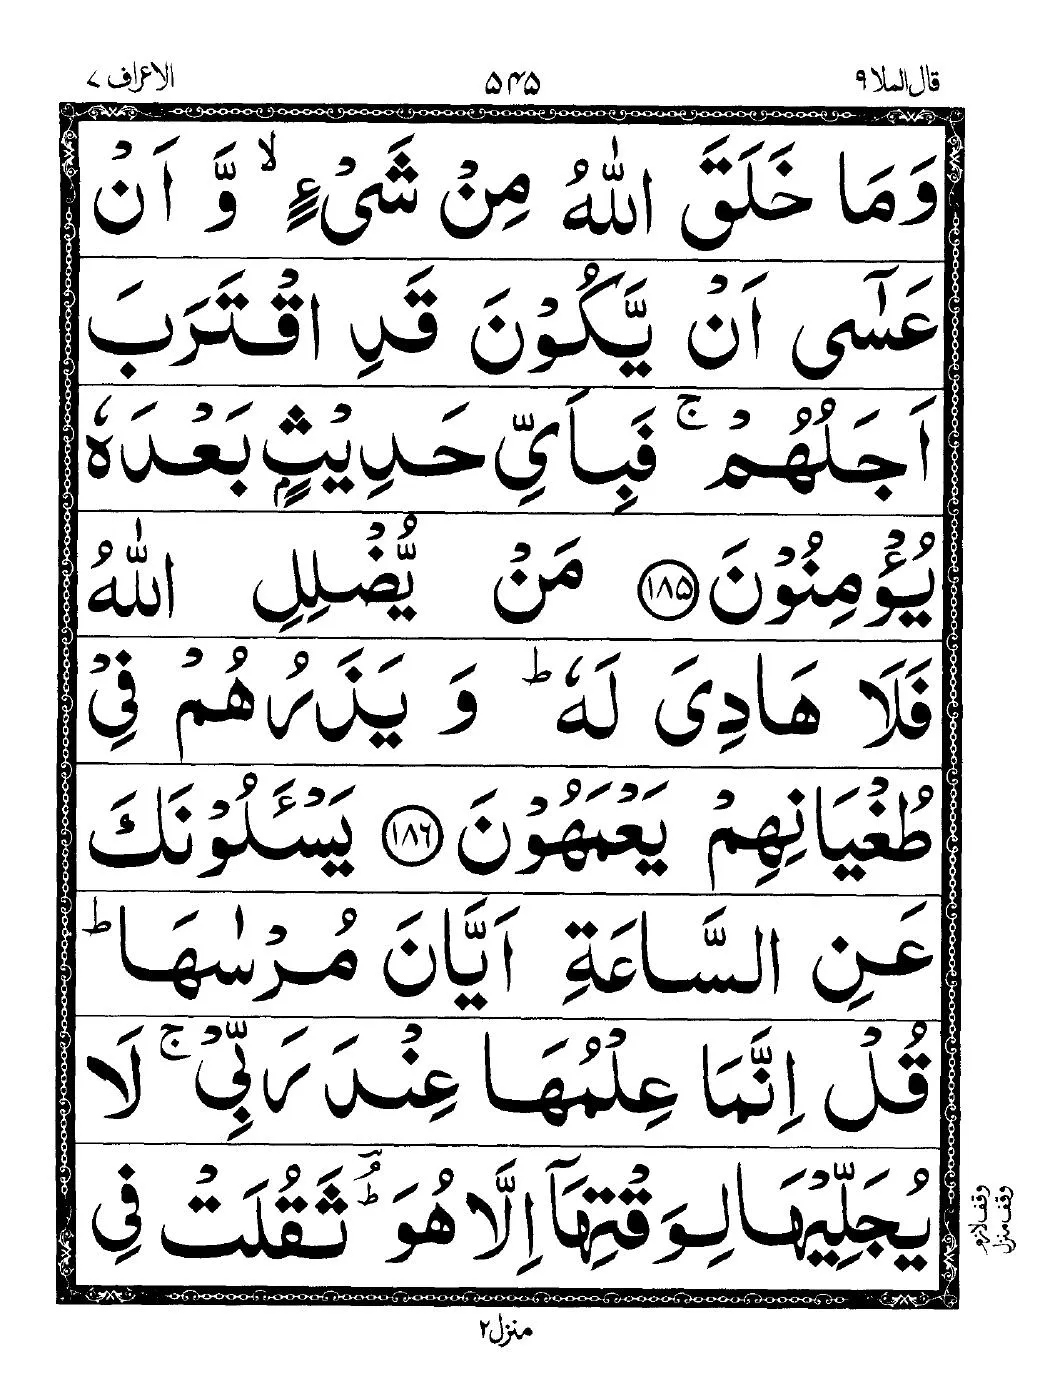 قال الملا ٩
۵۴۵
الاعراف ٧
وَمَا خَلَقَ اللّٰهُ مِنْ شَیْءٍ ۙ وَّ اَنْ
عَسٰٓی اَنْ یَّكُوْنَ قَدِ اقْتَرَبَ
اَجَلُهُمْ ۚ فَبِاَیِّ حَدِیْثٍۭ بَعْدَهٗ
یُؤْمِنُوْنَ ﴿۱۸۵﴾ مَنْ یُّضْلِلِ اللّٰهُ
فَلَا هَادِیَ لَهٗ ؕ وَ یَذَرُهُمْ فِیْ
طُغْیَانِهِمْ یَعْمَهُوْنَ ﴿۱۸۶﴾ یَسْـَٔلُوْنَكَ
عَنِ السَّاعَةِ اَیَّانَ مُرْسٰىهَا ؕ
قُلْ اِنَّمَا عِلْمُهَا عِنْدَ رَبِّیْ ۚ لَا
یُجَلِّیْهَا لِوَقْتِهَاۤ اِلَّا هُوَ ؕۘ ثَقُلَتْ فِی
وقف لازم
وقف منزل
منزل ۲